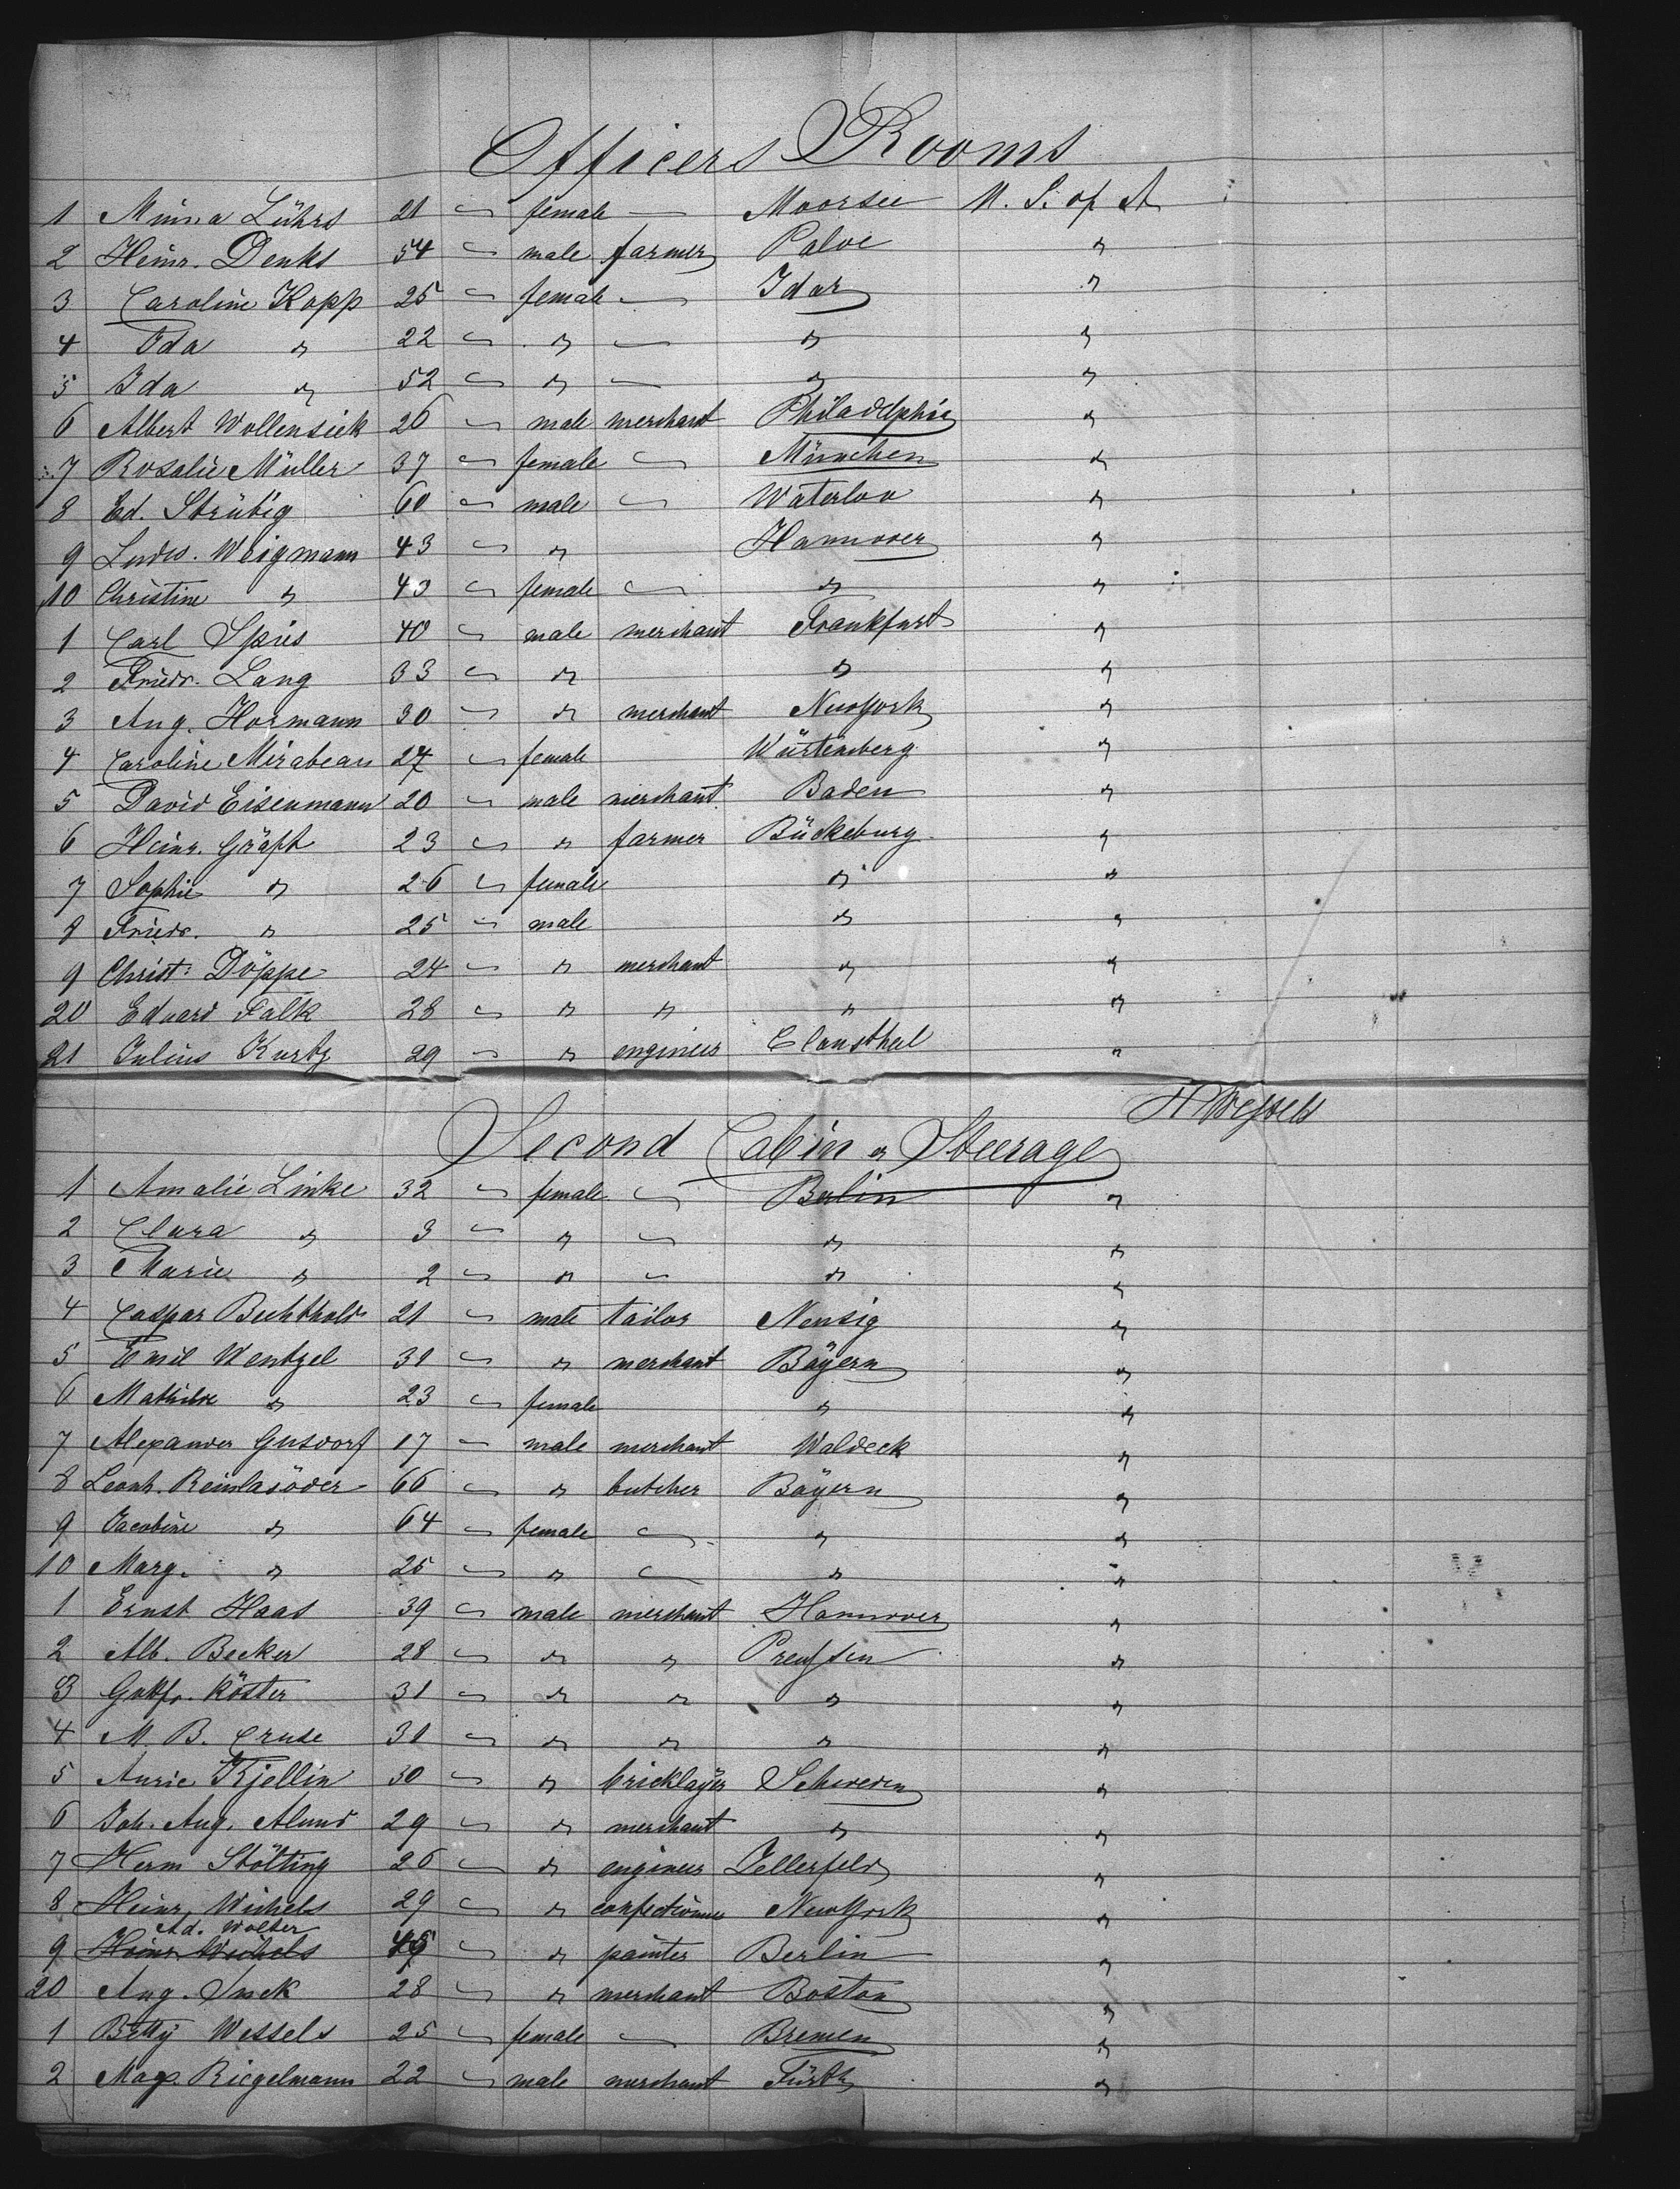 Officers Rooms
1 Minna Lührs 21 — female — Moorsee U. S. of A
2 Heinr. Denks 54 — male farmer Paloe "
3 Caroline Kopp 25 — female — Idar "
4 Ida " 22 — " — " "
5 Ida " 52 — " — " "
6 Albert Wollensiek 26 — male merchant Philadelphia "
7 Rosalie Müller 37 — female — München "
8 Ed. Strübig 60 — male — Waterloo "
9 Ludw. Weigmann 43 — " Hannover "
10 Christine " 43 — female — " "
1 Carl Spies 40 — male merchant Frankfurt "
2 Friedr. Lang 33 — " " "
3 Aug. Hormann 30 — " merchant NewYork "
4 Caroline Mirabeau 27 — female Würtemberg "
5 David Eisenmann 20 — male merchant Baden "
6 Heinr. Gräft 23 — " farmer Bückeburg "
7 Sophie " 26 — female " "
8 Friedr. " 25 — male " "
9 Christ: Döppe 24 — " merchant " "
20 Eduard Falk 28 — " " " "
21 Julius Kurtz 29 — " engineer Clausthal "
H Wessels
Second Cabin & Steerage
1 Amalie Linke 32 — female — Berlin "
2 Clara " 3 — " — " "
3 Marie " 2 — " — " "
4 Caspar Buchthold 21 — male tailor Nensig "
5 Emil Wentzel 31 — " merchant Bayern "
6 Mathilde " 23 — female " "
7 Alexander Gusdorf 17 — male merchant Waldeck "
8 Leonh. 66 — " butcher Bayern "
9 Jacobine " 64 — female — " "
10 Marg. " 25 — " — " "
1 Ernst Haas 39 — male merchant Hannover "
2 Alb. Becker 28 — " " Preussen "
3 Gottfr. Köster 31 — " " " "
4 M. B. Cruse 31 — " " " "
5 Kjellin 30 — " bricklayer Schweden "
6 Joh. Aug. Alund 29 — " merchant " "
7 Herm Stölting 26 — " engineer Zellerfeld "
8 Heinr. Wichels 29 — " confectioner NewYork "
Ad. Wolter
9 Heinr. Wichels — " painter Berlin "
20 Aug. 28 — " merchant Boston "
1 Betty Wessels 25 — female — Bremen "
2 Max. Riegelmann 22 — male merchant Fürth "